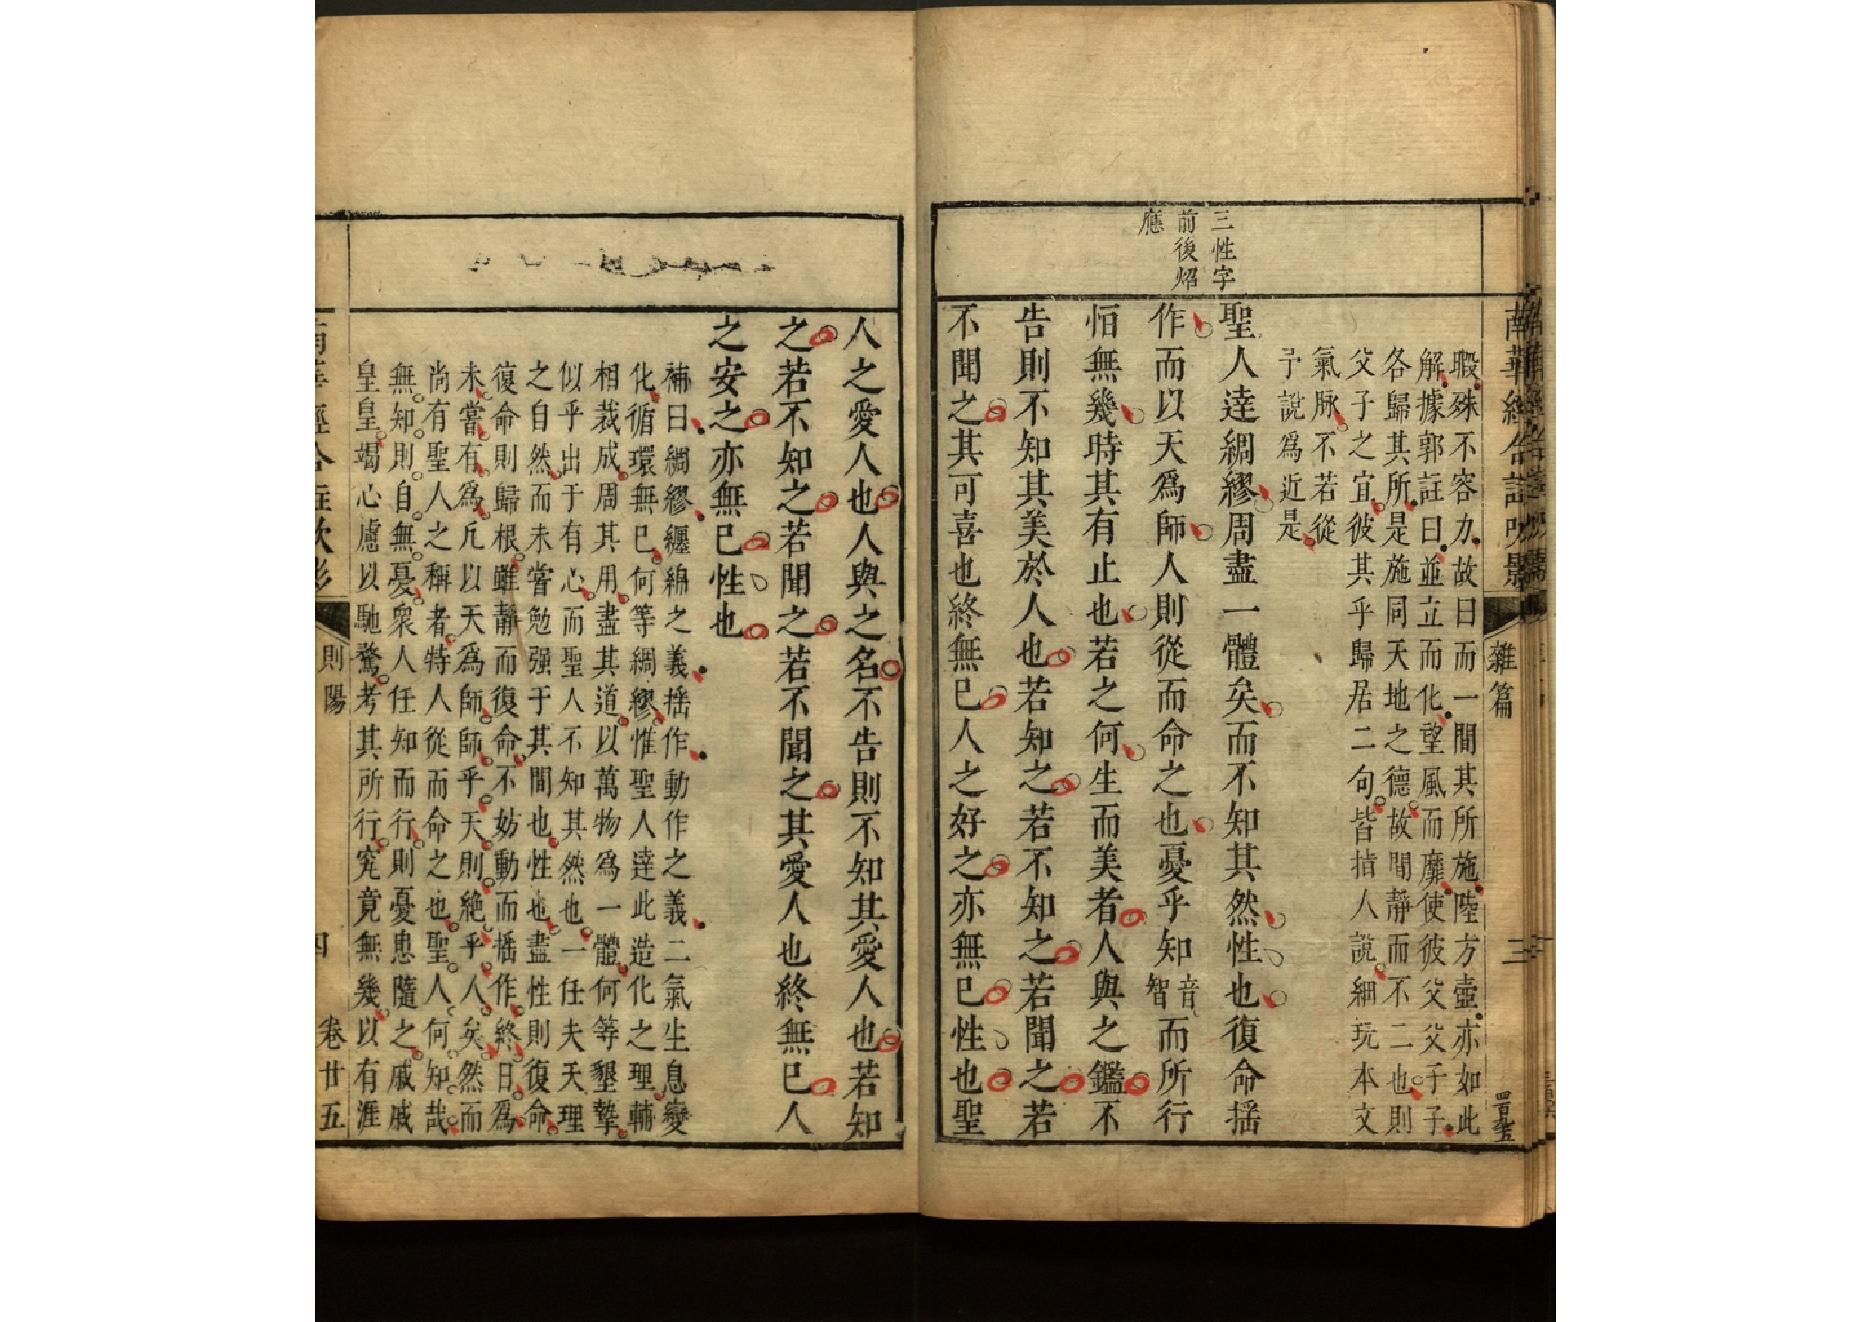 三性字
前後炤
應
南華經合註吹影
雜篇
三
暇殊不容力故曰而一間其所施陸方壺亦如此
解據郭註曰並立而化望風而靡使彼父父子子
各歸其所是施同天地之德故間靜而不二也則
父子之宜彼其乎歸居二句皆指人說細玩本文
氣脉不若從
予說爲近是
聖人達綢繆周盡一體矣而不知其然性也復命揺
作而以天爲師人則從而命之也憂乎知音智而所行
恒無幾時其有止也若之何生而美者人與之鑑不
告則不知其美於人也若知之若不知之若聞之若
不聞之其可喜也終無已人之好之亦無已性也聖
人之愛人也人與之名不告則不知其愛人也若知
之若不知之若聞之若不聞之其愛人也終無已人
之安之亦無已性也
補曰綢繆纏綿之義揺作動作之義二氣生息變
化循環無已何等綢繆惟聖人達此造化之理輔
相裁成周其用盡其道以萬物爲一體何等墾摯
似乎出于有心而聖人不知其然也一任夫天理
之自然而未嘗勉强于其間也性也盡性則復命
復命則歸根雖靜而復命不妨動而揺作終日爲
未嘗有爲凡以天爲師師乎天則絶乎人矣然而
尚有聖人之稱者特人從而命之也聖人何知哉
無知則自無憂衆人任知而行則憂患隨之戚戚
皇皇竭心慮以馳騖考其所行究竟無幾以有涯
則陽
四
卷廿五